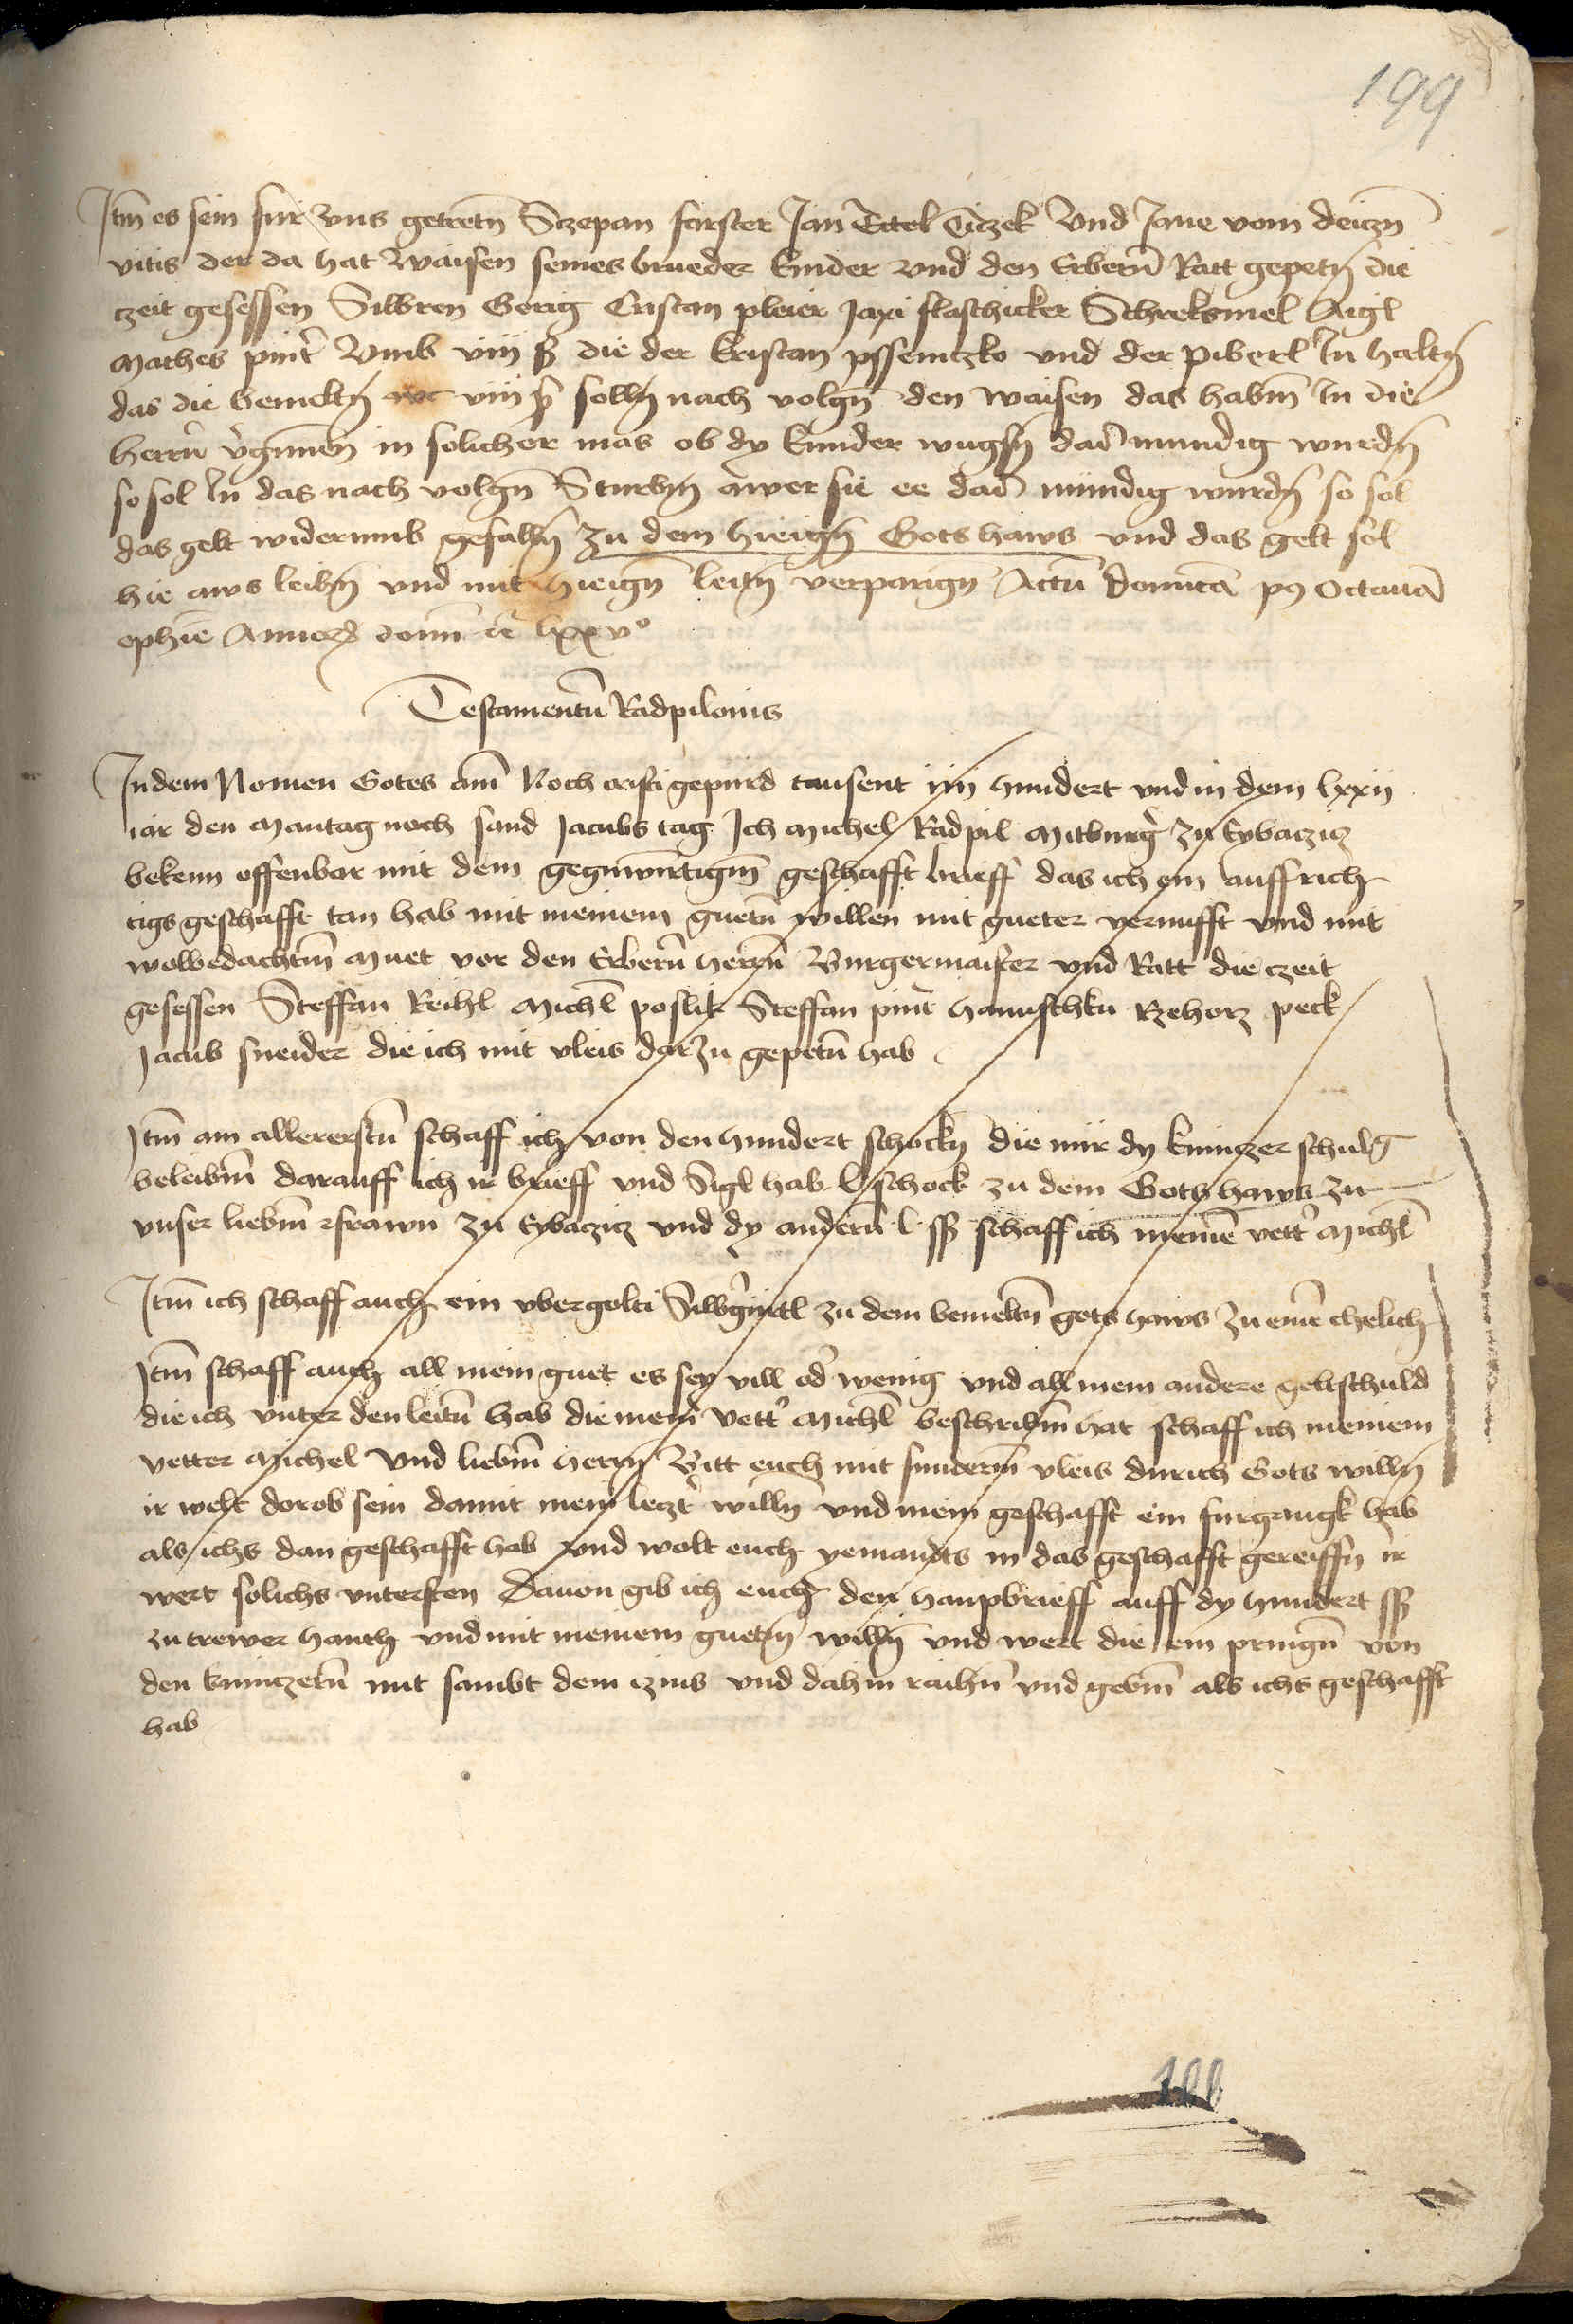 199
Itm es sein fur Vns getretn Sczepan forster Jan Ettel Ticzek Vnd Jane vom deiczn
vitis der da hat Waisen seines brueder kinder vnd den Erbern Ratt gepetn die
czeit gesessen Silbren Gorig Cristan pleier Jaxi flaschicker Schreksmel Aigl
Mathes pint Vmb viii ß die der Cristan pssenczko vnd der Piberl In haltn
das die bemeltn viii ß solln nach volgn den waisen das habm In die
herrn vgunnen in solicher mas ob dy kinder wugsn das mundig wurdn
so sol In das nach volgn Sturbn awer sie ee das mundig wurdn so sol
das gelt widerumb gefalln zu dem hieign Gots haws vnd das gelt sol
hie aws leibn vnd mit hieign leitn verparign Actu Dominica p9 Octauam
ephie Annorum domi lxxvo
Testamentu Radpilonis
In dem Nomen Gotes am Noch cristi gepurd tausent iiii hundert vnd in dem lxxii
iar den Mantag noch sand Jacubs tag Ich Michel Radpil Mitburg zu Eybaczicz
bekenn offenbar mit dem gegnwurtigm geschafft brieff das ich ein auffrich
tigs geschafft tan hab mit meinem guetn willen mit gueter vernufft vnd mit
wolbedachtm Muet vor den Erbern herrn Burgermaister vnd Ratt die czeit
gesessen Steffan Reihl Michl poslik Steffan pint hanuschku Rzehorz peck
Jacub sneider die ich mit vleis darzu gepetn hab
Itm am allererstn schaff ich von den hundert schockn die mir dy kniczer schuld
beleibm darauff ich ir brieff vnd Sigl hab l schock zu dem Gots haws zu
vnser liebm frawn zu Eybaczicz vnd dy andern l ss schaff ich meine vett Michl
Itm ich schaff auch ein vbergolti Silbgurtl zu dem bemeltn gots haws zu eine chelich
Itm schaff auch all mein guet es sey vill od wenig vnd all mein andere geltschuld
die ich vnter den leitn hab die mein vett Michl beschribm hat schaff ich meinem
vetter Michel Vnd liebm herrn Bitt euch mit sunderm vleis durich Gots willn
ir welt dorob sein damit mein leczt willn vnd mein geschafft ein furgangk hab
als ichs dan geschafft hab vnd wolt euch yemandts in das geschafft gereiffn ir
wert solichs vntersten Dauon gib ich euch den haupbrieff auff dy hundert ss
zu trewer hanth vnd mit meinem guetn willn vnd wert die ein pringn von
den kniczern mit sambt dem czins vnd dahin raihn vnd gebm als ichs geschafft
hab